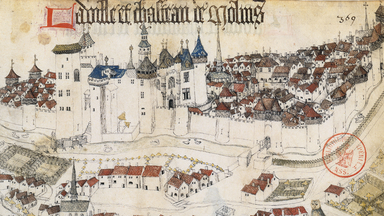 La ville et chasteau de molins
369